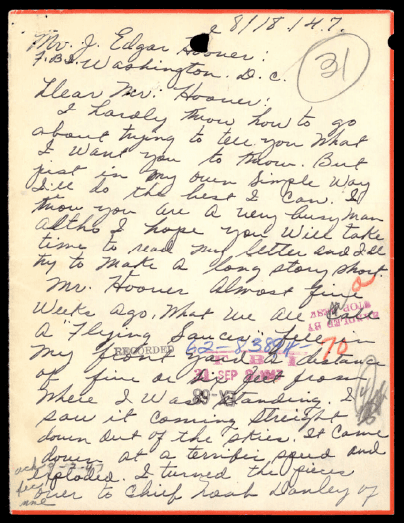 8/18/47.
Mr. J. Edgar Hoover:
F.B.I. Washington. D. C.
31
Dear Mr. Hoover:
I hardly know how to go
about trying to tell you What
I Want you to Know. But
just in my own Simple Way
I'll do the best I can. I
Know you are A very busy Man
Altho I hope you Will take
time to read my letter and I'll
try to Make a long story short.
Mr. Hoover Almost five
Weeks ago. What we all
A Flying Saucer fell in
my front yard a distance
RECORDED
62-83894
70
F B I
SEP 2 1947
of five or six feet from
Where I Was standing. I
saw it coming straight
down out of the skies. It Came
down at a terrific speed and
Exploded. I turned the pieces
over to Chief Noah Danley of